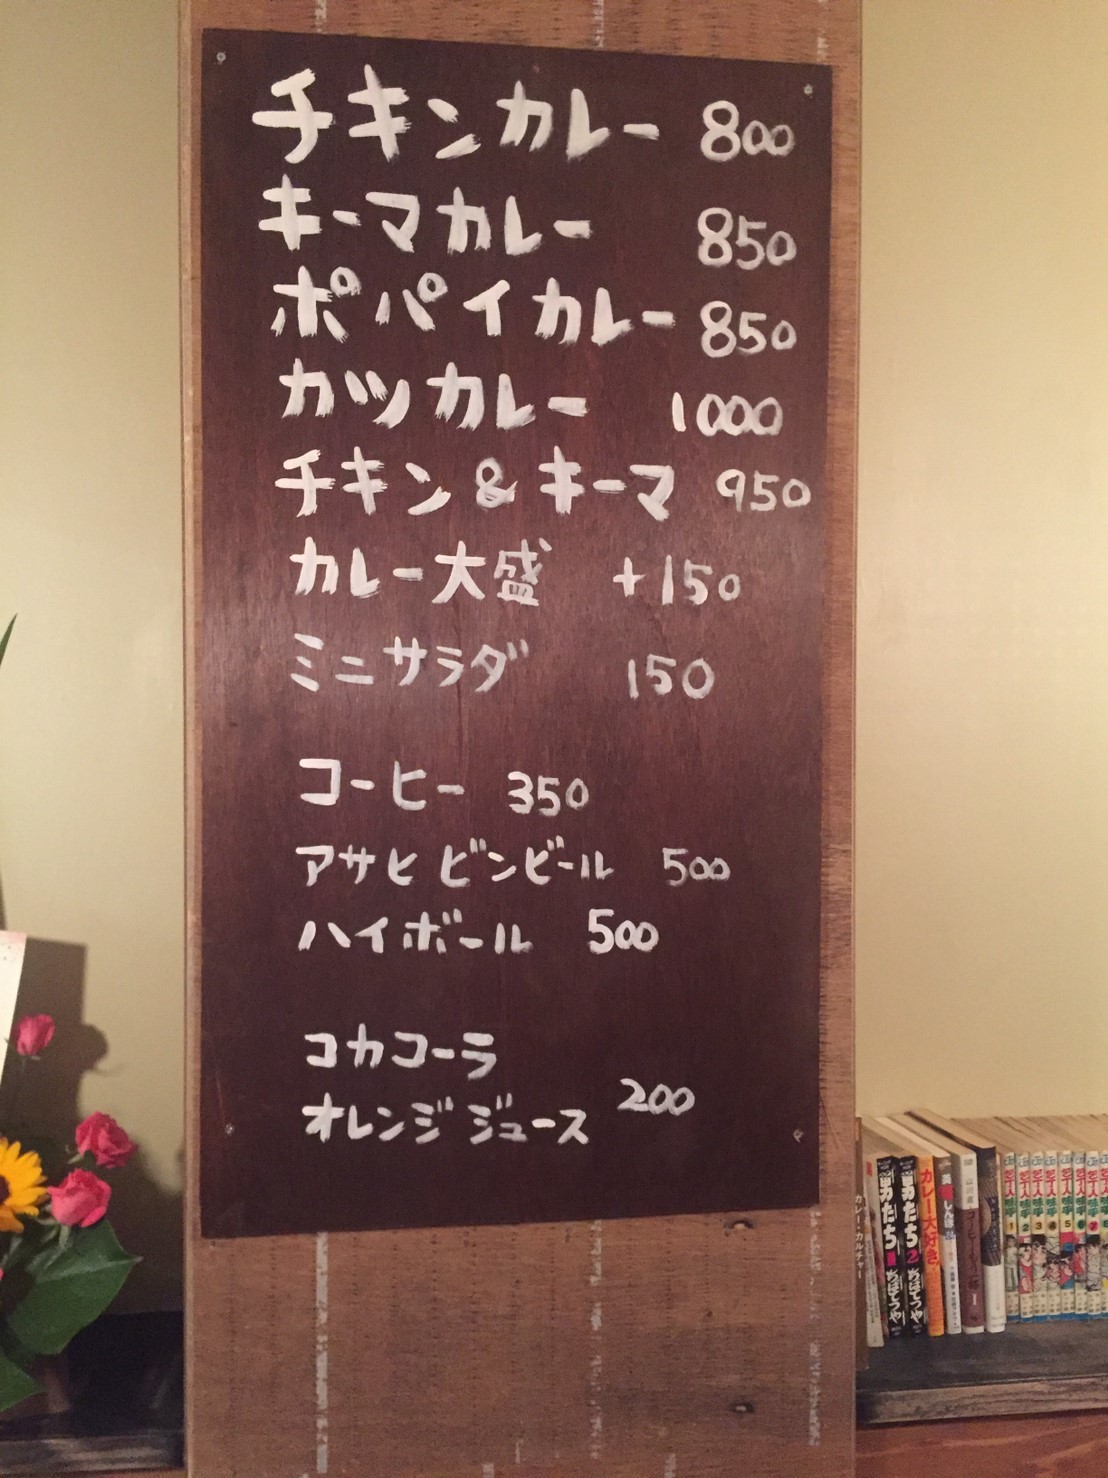 チキンカレー 800
キーマカレー 850
ポパイカレー 850
カツカレー 1000
チキン&キーマ 950
カレー大盛 +150
ミニサラダ 150
コーヒー 350
アサヒ ビンビール 500
ハイボール 500
コカコーラ
オレンジジュース 200
カレー・カルチャー
男たち
男たち2 ちばてつや
カレー大好き
1 2 3 4 5 6 7